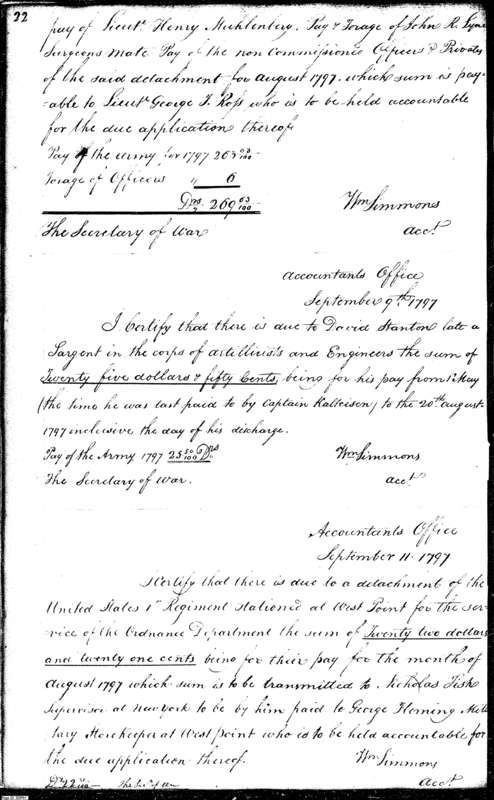 22
pay of Lieut. Henry Muhlenberg, Pay & Forage of John R. Lynch
Surgeons Mate Pay of the non Commissioned Officers & Privates
of the said detachment for August 1797. which sum is pay-
able to Lieut. George T. Ross who is to be held accountable
for the due application thereof
Pay of the Army for 1797 263 63/100
Forage of Officers " 6
Drs 269 63/100
Wm Simmons
The Secretary of War
acct.
Accountants Office
September 9th 1797
I Certify that there is due to David Stanton late a
Sargent in the corps of artillirists and Engineers the sum of
Twenty five dollars & fifty Cents, being for his pay from 1st May
(the time he was last paid to by Captain Kalteisen) to the 20th august
1797 inclusive the day of his discharge.
Pay of the Army 1797 25 50/100 Drs
Wm Simmons
The Secretary of War.
acct.
Accountants Office
September 11. 1797
I Certify that there is due to a detachment of the
United States 1st Regiment stationed at West Point for the ser-
vice of the Ordnance Department the sum of Twenty two dollars
and twenty one cents being for their pay for the month of
August 1797 which sum is to be transmitted to Nicholas Fish
Supervisor at New York to be by him paid to George Fleming Mili
tary Storekeeper at West point who is to be held accountable for
the due application thereof.
Wm Simmons
Drs 22
The Sec. of War
acct.